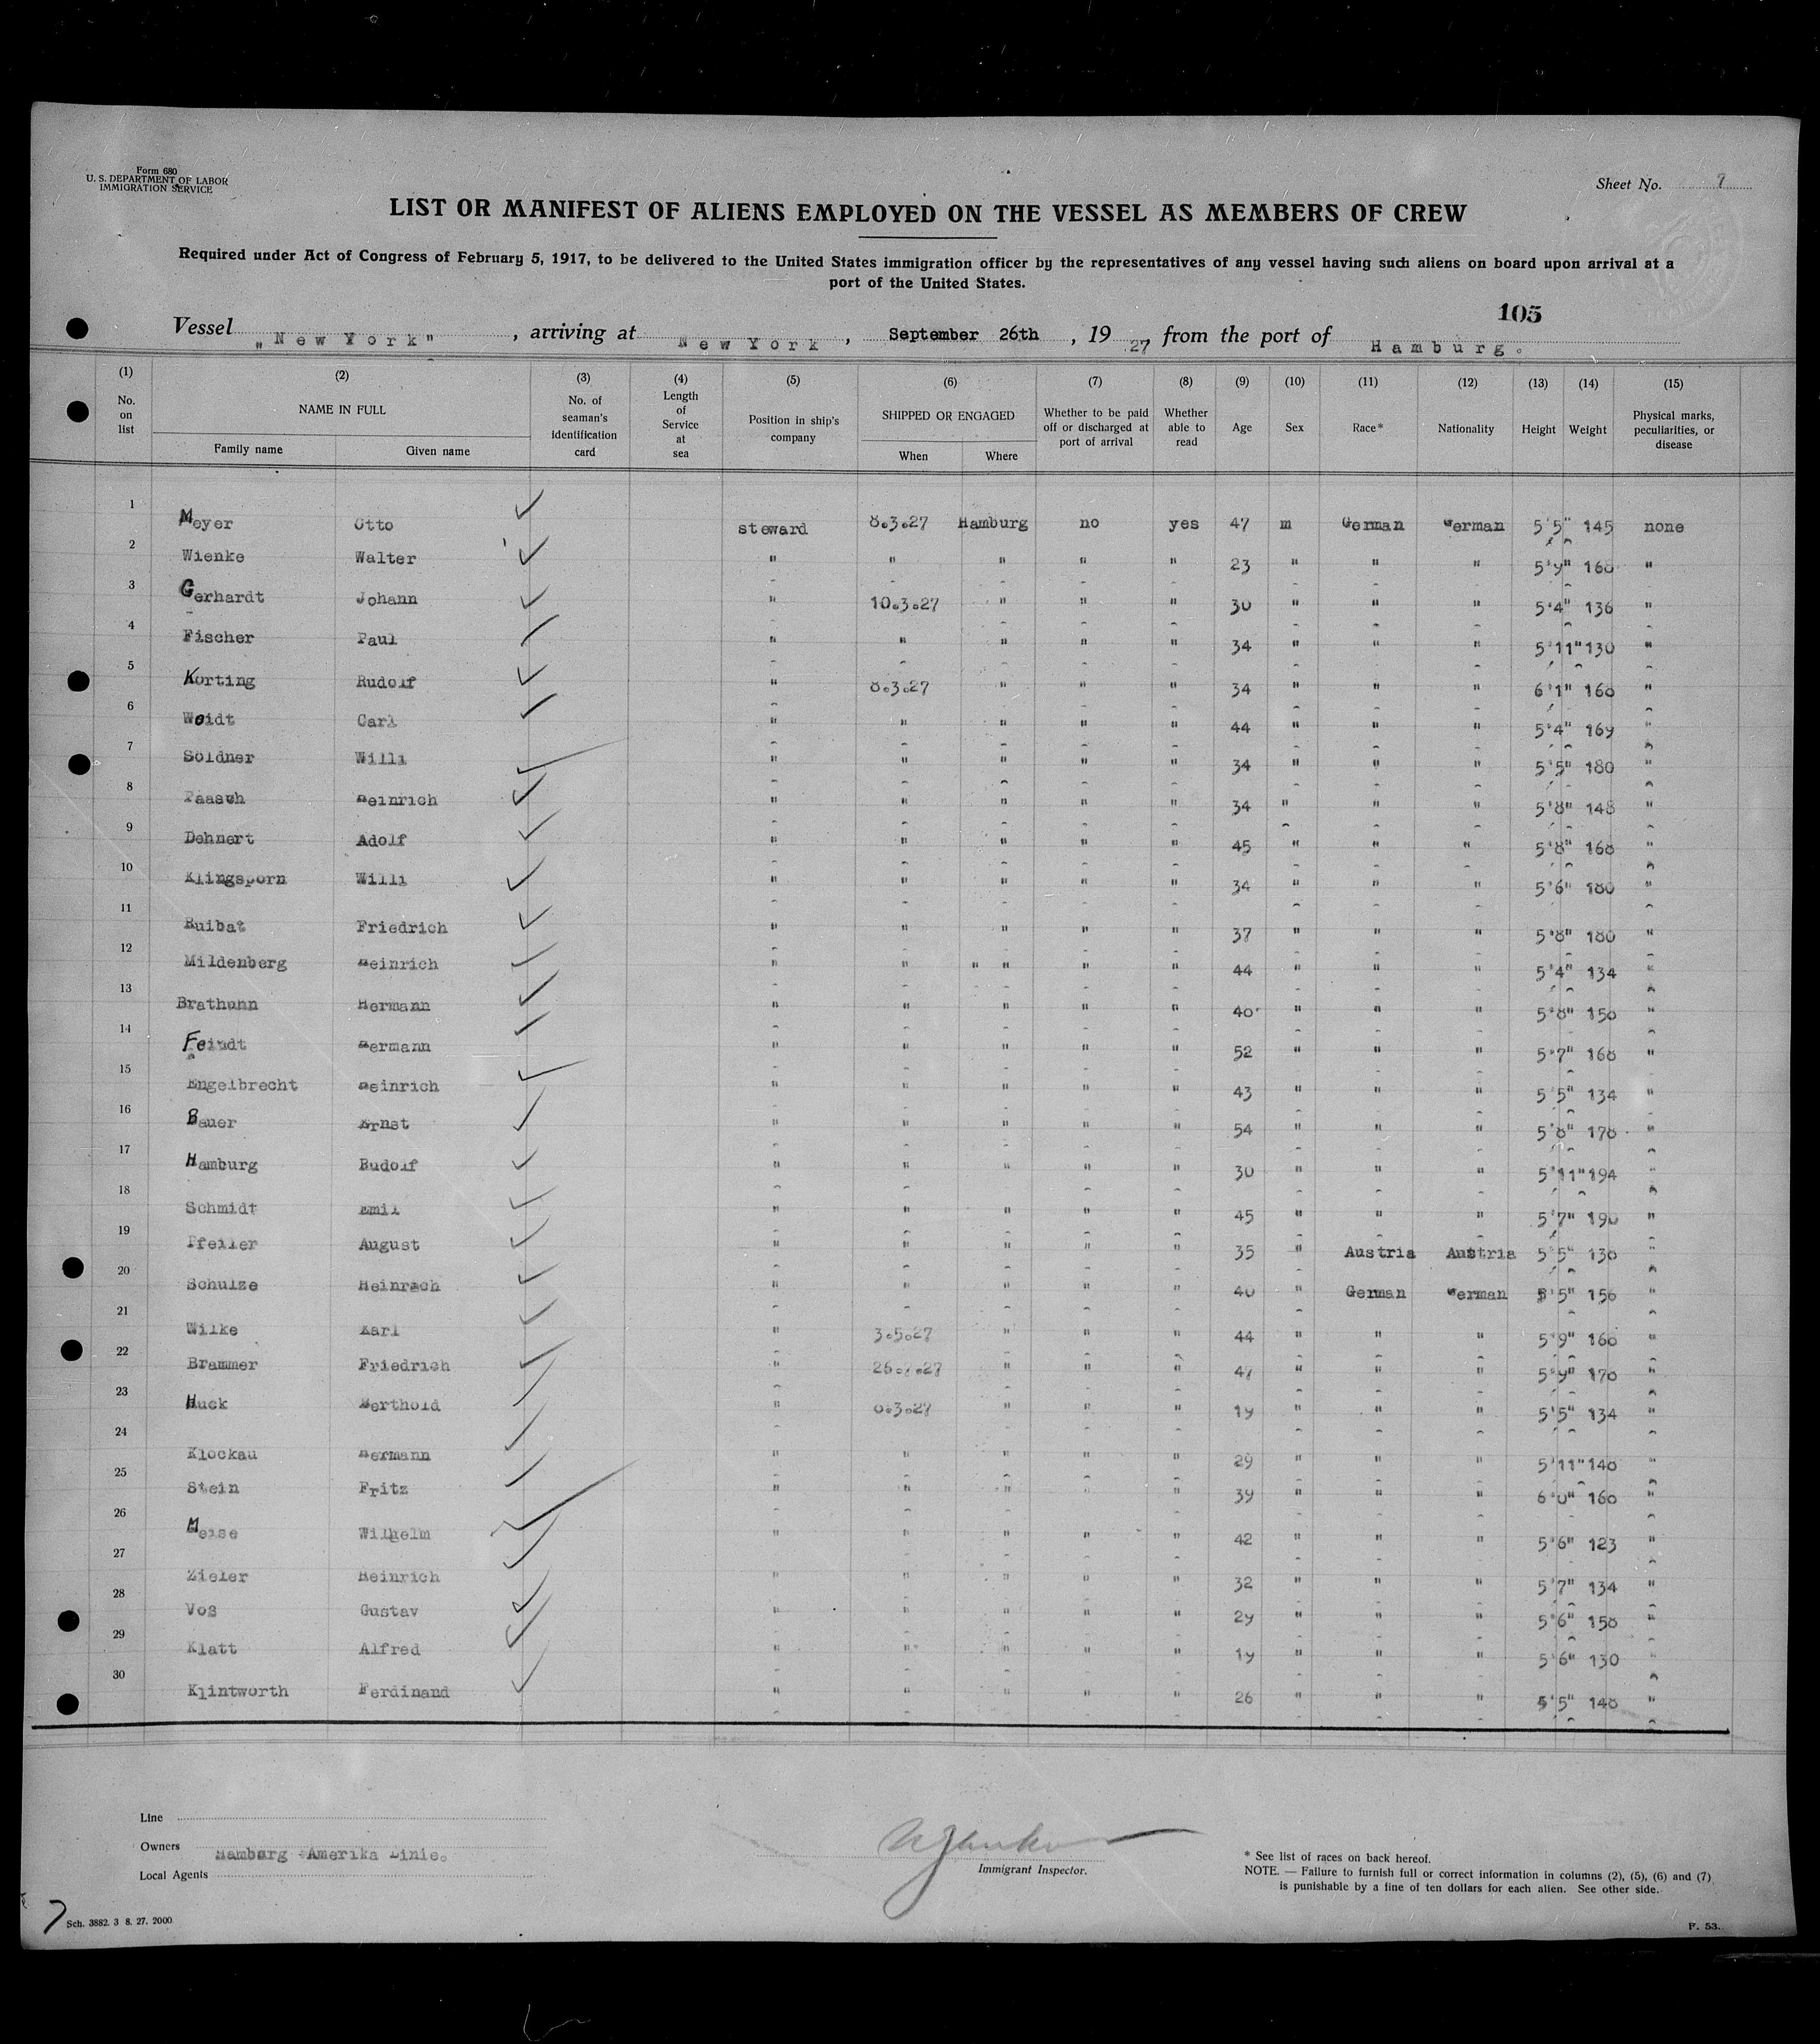 Form 680
U. S. DEPARTMENT OF LABOR
IMMIGRATION SERVICE
Sheet No. 7
LIST OR MANIFEST OF ALIENS EMPLOYED ON THE VESSEL AS MEMBERS OF CREW
Required under Act of Congress of February 5, 1917, to be delivered to the United States immigration officer by the representatives of any vessel having such aliens on board upon arrival at a
port of the United States.
105
Vessel „New York", arriving at New York, September 26th, 1927, from the port of Hamburg.
(1) (2) (3) (4) (5) (6) (7) (8) (9) (10) (11) (12) (13) (14) (15)
No. on list NAME IN FULL Family name Given name No. of seaman's identification card Length of Service at sea Position in ship's company SHIPPED OR ENGAGED When Where Whether to be paid off or discharged at port of arrival Whether able to read Age Sex Race* Nationality Height Weight Physical marks, peculiarities, or disease
1 Meyer Otto steward 8.3.27 Hamburg no yes 47 m German German 5'5" 145 none
2 Wienke Walter " " " " " 23 " " " 5'9" 160 "
3 Gerhardt Johann " 10.3.27 " " " 30 " " " 5'4" 136 "
4 Fischer Paul " " " " " 34 " " " 5'11" 130 "
5 Korting Rudolf " 8.3.27 " " " 34 " " " 6'1" 160 "
6 Weidt Carl " " " " " 44 " " " 5'4" 169 "
7 Söldner Willi " " " " " 34 " " " 5'5" 180 "
8 Paasch Heinrich " " " " " 34 " " " 5'8" 148 "
9 Dehnert Adolf " " " " " 45 " " " 5'8" 168 "
10 Klingsporn Willi " " " " " 34 " " " 5'6" 180 "
11 Ruibat Friedrich " " " " " 37 " " " 5'8" 180 "
12 Mildenberg Heinrich " " " " " " 44 " " " 5'4" 134 "
13 Brathuhn Hermann " " " " " 40 " " " 5'8" 150 "
14 Feindt Hermann " " " " " 52 " " " 5'7" 168 "
15 Engelbrecht Heinrich " " " " " 43 " " " 5'5" 134 "
16 Bauer Ernst " " " " " 54 " " " 5'8" 178 "
17 Hamburg Rudolf " " " " " 30 " " " 5'11" 194 "
18 Schmidt Emil " " " " " 45 " " " 5'7" 190 "
19 Pfeiler August " " " " " 35 " Austria Austria 5'5" 130 "
20 Schulze Heinrach " " " " " 40 " German German 5'5" 156 "
21 Wilke Karl " 3.5.27 " " " 44 " " " 5'9" 160 "
22 Brammer Friedrich " 26.7.27 " " " 47 " " " 5'9" 170 "
23 Huck Berthold " 8.3.27 " " " 19 " " " 5'5" 134 "
24 Klockau Hermann " " " " " 29 " " " 5'11" 140 "
25 Stein Fritz " " " " " 39 " " " 6'0" 160 "
26 Meise Wilhelm " " " " " 42 " " " 5'6" 123 "
27 Zieler Heinrich " " " " " 32 " " " 5'7" 134 "
28 Vos Gustav " " " " " 29 " " " 5'6" 150 "
29 Klatt Alfred " " " " " 19 " " " 5'6" 130 "
30 Klintworth Ferdinand " " " " " 26 " " " 5'5" 148 "
Line
Owners Hamburg Amerika Linie.
Local Agents
Immigrant Inspector.
* See list of races on back hereof.
NOTE. — Failure to furnish full or correct information in columns (2), (5), (6) and (7)
is punishable by a fine of ten dollars for each alien. See other side.
7
Sch. 3882. 3 8. 27. 2000
F. 53.